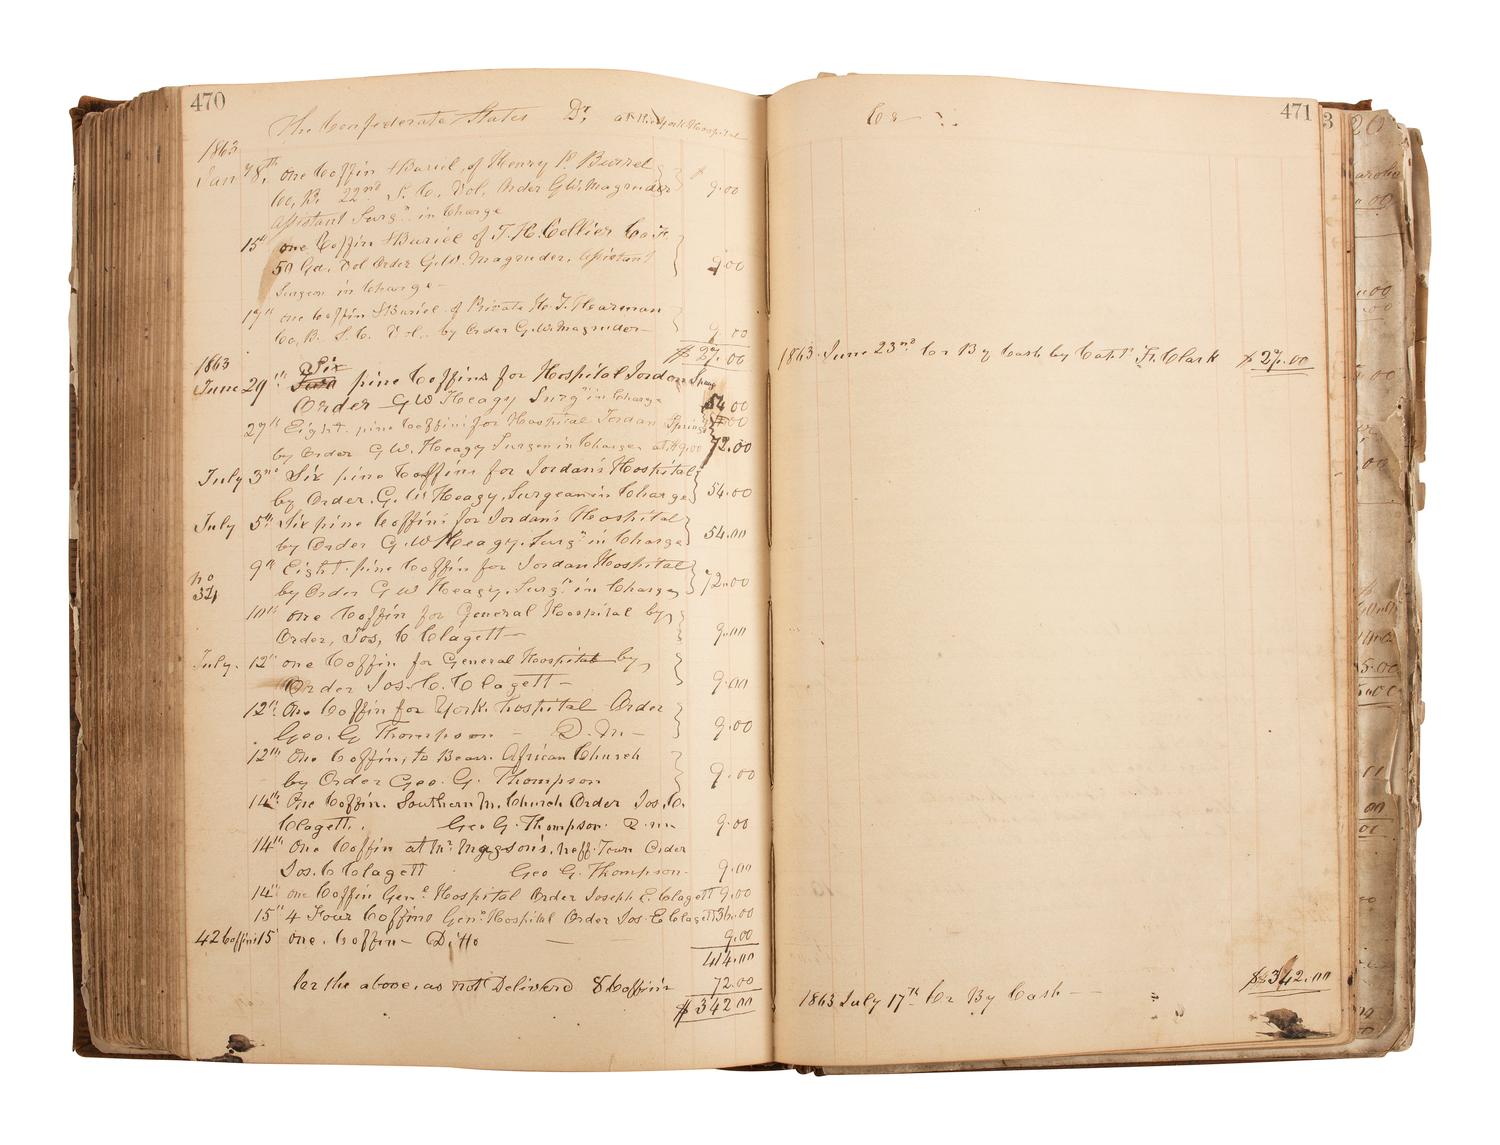 470
The Confederate States Dr, at the York Hospital
1863
Jany 8th, one Coffin & Buriel, of Henry P. Burrel
Co, B. 22nd S. C. Vol, Order G.W. Magruder $ 9.00
Assistant Surgn in Charge
15th one Coffin & Buriel of T. H. Collier Co. F.
50 Ga. Vol Order G. W. Magruder, Assistant 9.00
Surgeon in Charge -
17th one Coffin & Buriel of Private H. T. Hearman
Co, B. S. C. Vol. by Order G.W. Magruder — 9.00
$ 27.00
1863 Six
June 29th pine Coffins for Hospital Jordan Springs
Order G W Heagy Surgn in Charge 54.00
27th Eight pine Coffins for Hospital Jordan Springs
by Order G. W. Heagy Surgeon in Charge at $9.00 72.00
July 3rd Six pine Coffins for Jordan's Hospital
by Order. G. W. Heagy, Surgeon in Charge 54.00
July 5th Six pine Coffins for Jordan's Hospital
by Order G. W Heagy, Surgn in Charge 54.00
9th Eight pine Coffins for Jordan Hospital
by Order G W Heagy, Surgn in Charge 72.00
10th one Coffin for General Hospital by
Order, Jos, C Clagett — 9.00
July. 12th one Coffin for General Hospital by,
Order Jos. C. Clagett — 9.00
12th One Coffin for York Hospital Order
Geo. G Thompson — Q. M — 9.00
12th One Coffin, to African Church
by Order Geo. G. Thompson 9.00
14th One Coffin. Southern M. Church Order Jos. C.
Clagett. Geo G. Thompson Q. M. 9.00
14th One Coffin at Mr. Magson's, Neff Town Order
Jos. C Clagett Geo G. Thompson 9.00
14th one Coffin Genl Hospital Order Joseph E. Clagett 9.00
15th 4 Four Coffins Genl Hospital Order Jos. E Clagett 36.00
42 Coffins 15th one. Coffin — Ditto — 9.00
414.00
Cr the above, as not Delivered 8 Coffins 72.00
$ 342.00
471
Cr
1863. June 23rd Cr By Cash by Capt Fr. Clark $ 27.00
1863 July 17th Cr By Cash — $ 342.00